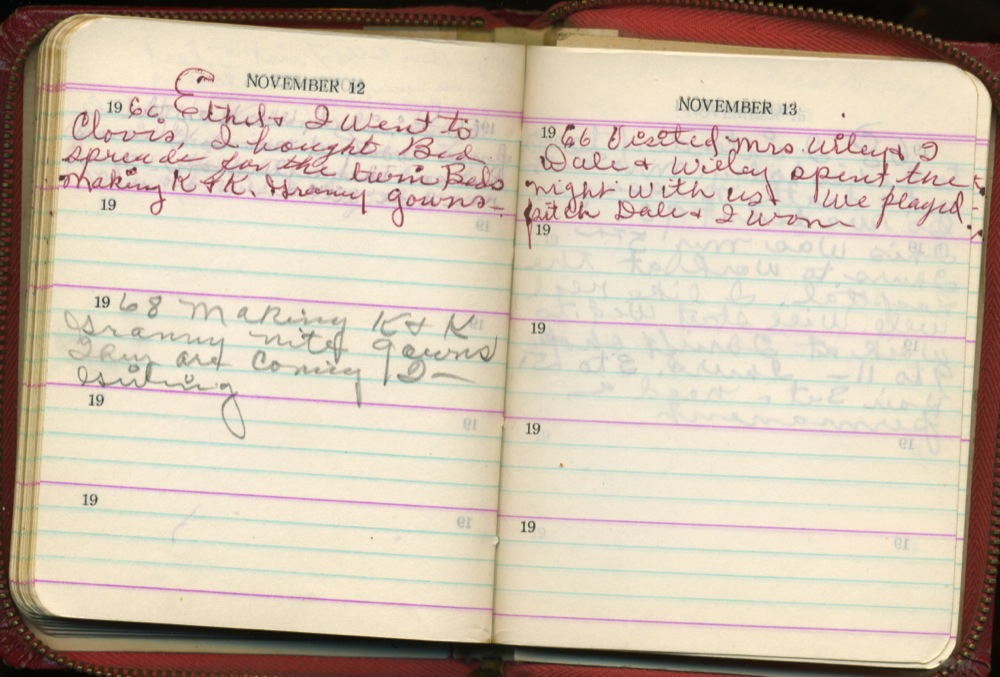 NOVEMBER 12
1966 Ethel & I went to
Clovis, I bought Bed
spreads for the twin Beds
Making K & K. Granny gowns.
19
1968 Making K & K
Granny nite gowns
are coming
19
19
NOVEMBER 13
1966 Visited Mrs. Wiley & I
Dale & Wiley spent the
night with us. We played
pitch Dale & I won
19
19
19
19